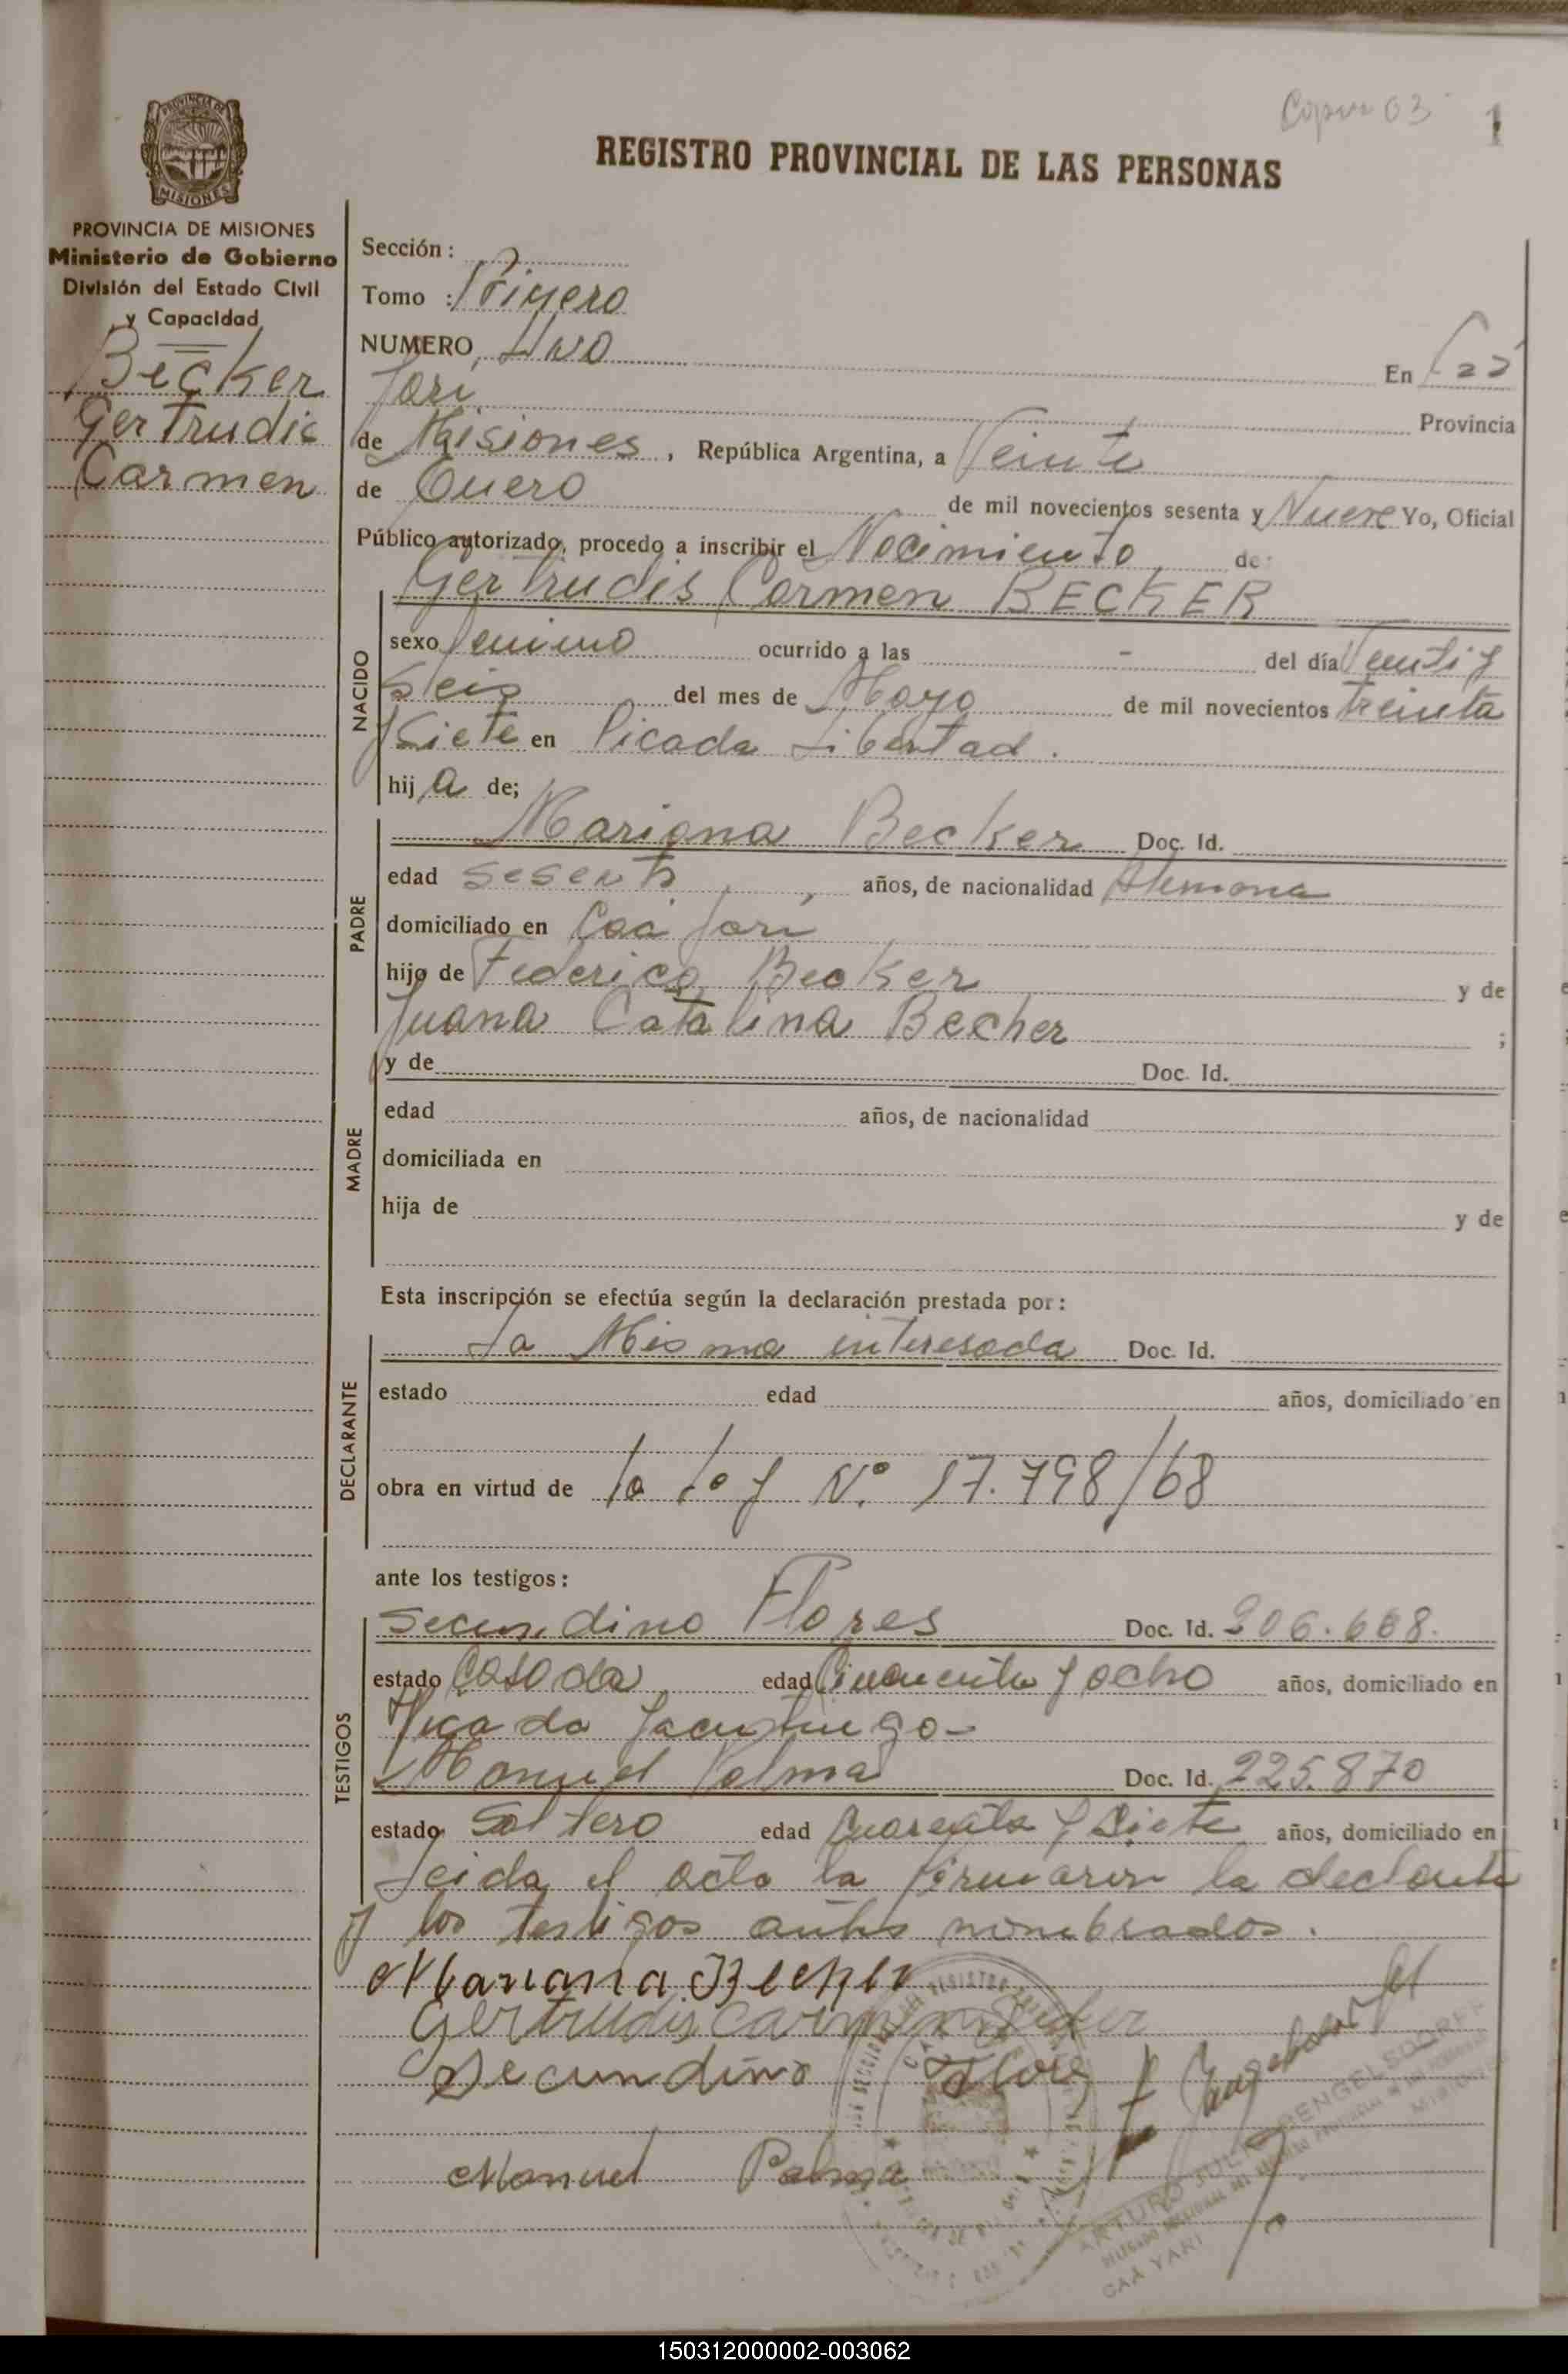 Copia 03 1
REGISTRO PROVINCIAL DE LAS PERSONAS
PROVINCIA DE MISIONES
MISIONES
PROVINCIA DE MISIONES
Ministerio de Gobierno
División del Estado Civil
y Capacidad
Becker
Gertrudis
Carmen
Sección :
Tomo : Primero
NUMERO Uno En Caá
Yari Provincia
de Misiones , República Argentina, a Veinte
de Enero de mil novecientos sesenta y Nueve Yo, Oficial
Público autorizado, procedo a inscribir el Nacimiento de:
Gertrudis Carmen BECKER
NACIDO
sexo femenino ocurrido a las - del día Veinti y
Seis del mes de Mayo de mil novecientos treinta
y Siete en Picada Libertad.
hij a de;
PADRE
Mariana Becker Doc. Id.
edad Sesenta años, de nacionalidad Alemana
domiciliado en Caá Yari
hijo de Federico Becker y de
Juana Catalina Becher ;
MADRE
y de Doc. Id.
edad años, de nacionalidad
domiciliada en
hija de y de
Esta inscripción se efectúa según la declaración prestada por :
DECLARANTE
La Misma interesada Doc. Id.
estado edad años, domiciliado en
obra en virtud de la Ley Nº 17.798/68
ante los testigos :
TESTIGOS
Secundino Flores Doc. Id. 906.668.
estado Casado edad Cincuenta y ocho años, domiciliado en
Picada
Manuel Palma Doc. Id. 225.870
estado Soltero edad Cuarenta y Siete años, domiciliado en
Leida el acta la firmaron la declarante
y los testigos antes nombrados.
Mariana Becker
Gertrudis Carmen Becker
Secundino Flores
Manuel Palma
ARTURO JULIO BENGELSDORFF
CAA YARI
MISIONES
150312000002-003062